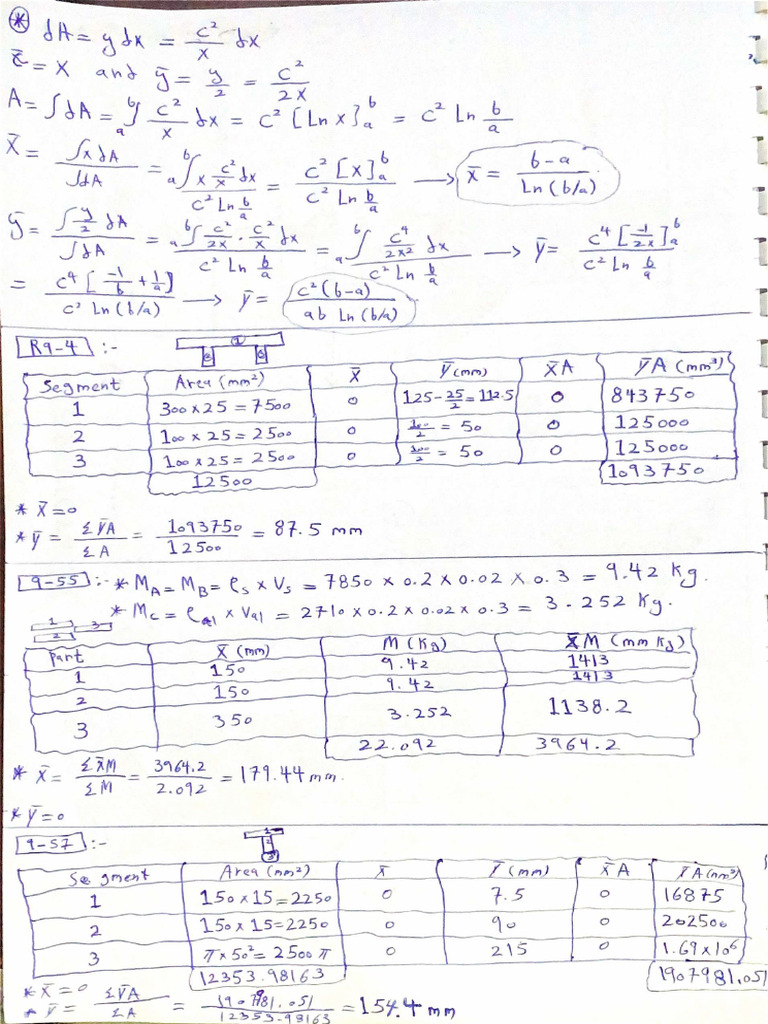 * dA = y dx = c²/x dx
x̄ = x and ȳ = y/2 = c²/2x
A = ∫dA = a∫b c²/x dx = c² [Ln x]a^b = c² Ln b/a
x̄ = ∫x dA / ∫dA = a∫b x c²/x dx / c² Ln b/a = c² [x]a^b / c² Ln b/a → x̄ = b-a / Ln (b/a)
ȳ = ∫ y/2 dA / ∫dA = a∫b c²/2x · c²/x dx / c² Ln b/a = a∫b c⁴/2x² dx / c² Ln b/a → ȳ = c⁴ [-1/2x]a^b / c² Ln b/a
= c⁴ [-1/b + 1/a] / c² Ln (b/a) → ȳ = c² (b-a) / ab Ln (b/a)
R9-4 :-
1
2 3
Segment Area (mm²) x̄ ȳ (mm) x̄A ȳA (mm³)
1 300 x 25 = 7500 0 125 - 25/2 = 112.5 0 843750
2 100 x 25 = 2500 0 100/2 = 50 0 125000
3 100 x 25 = 2500 0 100/2 = 50 0 125000
12500 1093750
* x̄ = 0
* ȳ = ΣȳA / ΣA = 1093750 / 12500 = 87.5 mm
9-55 :- * MA = MB = ρs x Vs = 7850 x 0.2 x 0.02 x 0.3 = 9.42 Kg.
* Mc = ρal x Val = 2710 x 0.2 x 0.02 x 0.3 = 3.252 Kg.
1 3
2
Part x̄ (mm) M (Kg) x̄M (mm Kg)
1 150 9.42 1413
2 150 9.42 1413
3 350 3.252 1138.2
22.092 3964.2
* x̄ = Σx̄M / ΣM = 3964.2 / 2.092 = 179.44 mm.
* ȳ = 0
9-57 :-
1
2
3
Segment Area (mm²) x̄ ȳ (mm) x̄A ȳA (mm³)
1 150 x 15 = 2250 0 7.5 0 16875
2 150 x 15 = 2250 0 90 0 202500
3 π x 50² = 2500 π 0 215 0 1.69 x 10⁶
12353.98163 1907981.051
* x̄ = 0
* ȳ = ΣȳA / ΣA = 1907981.051 / 12353.98163 = 154.4 mm